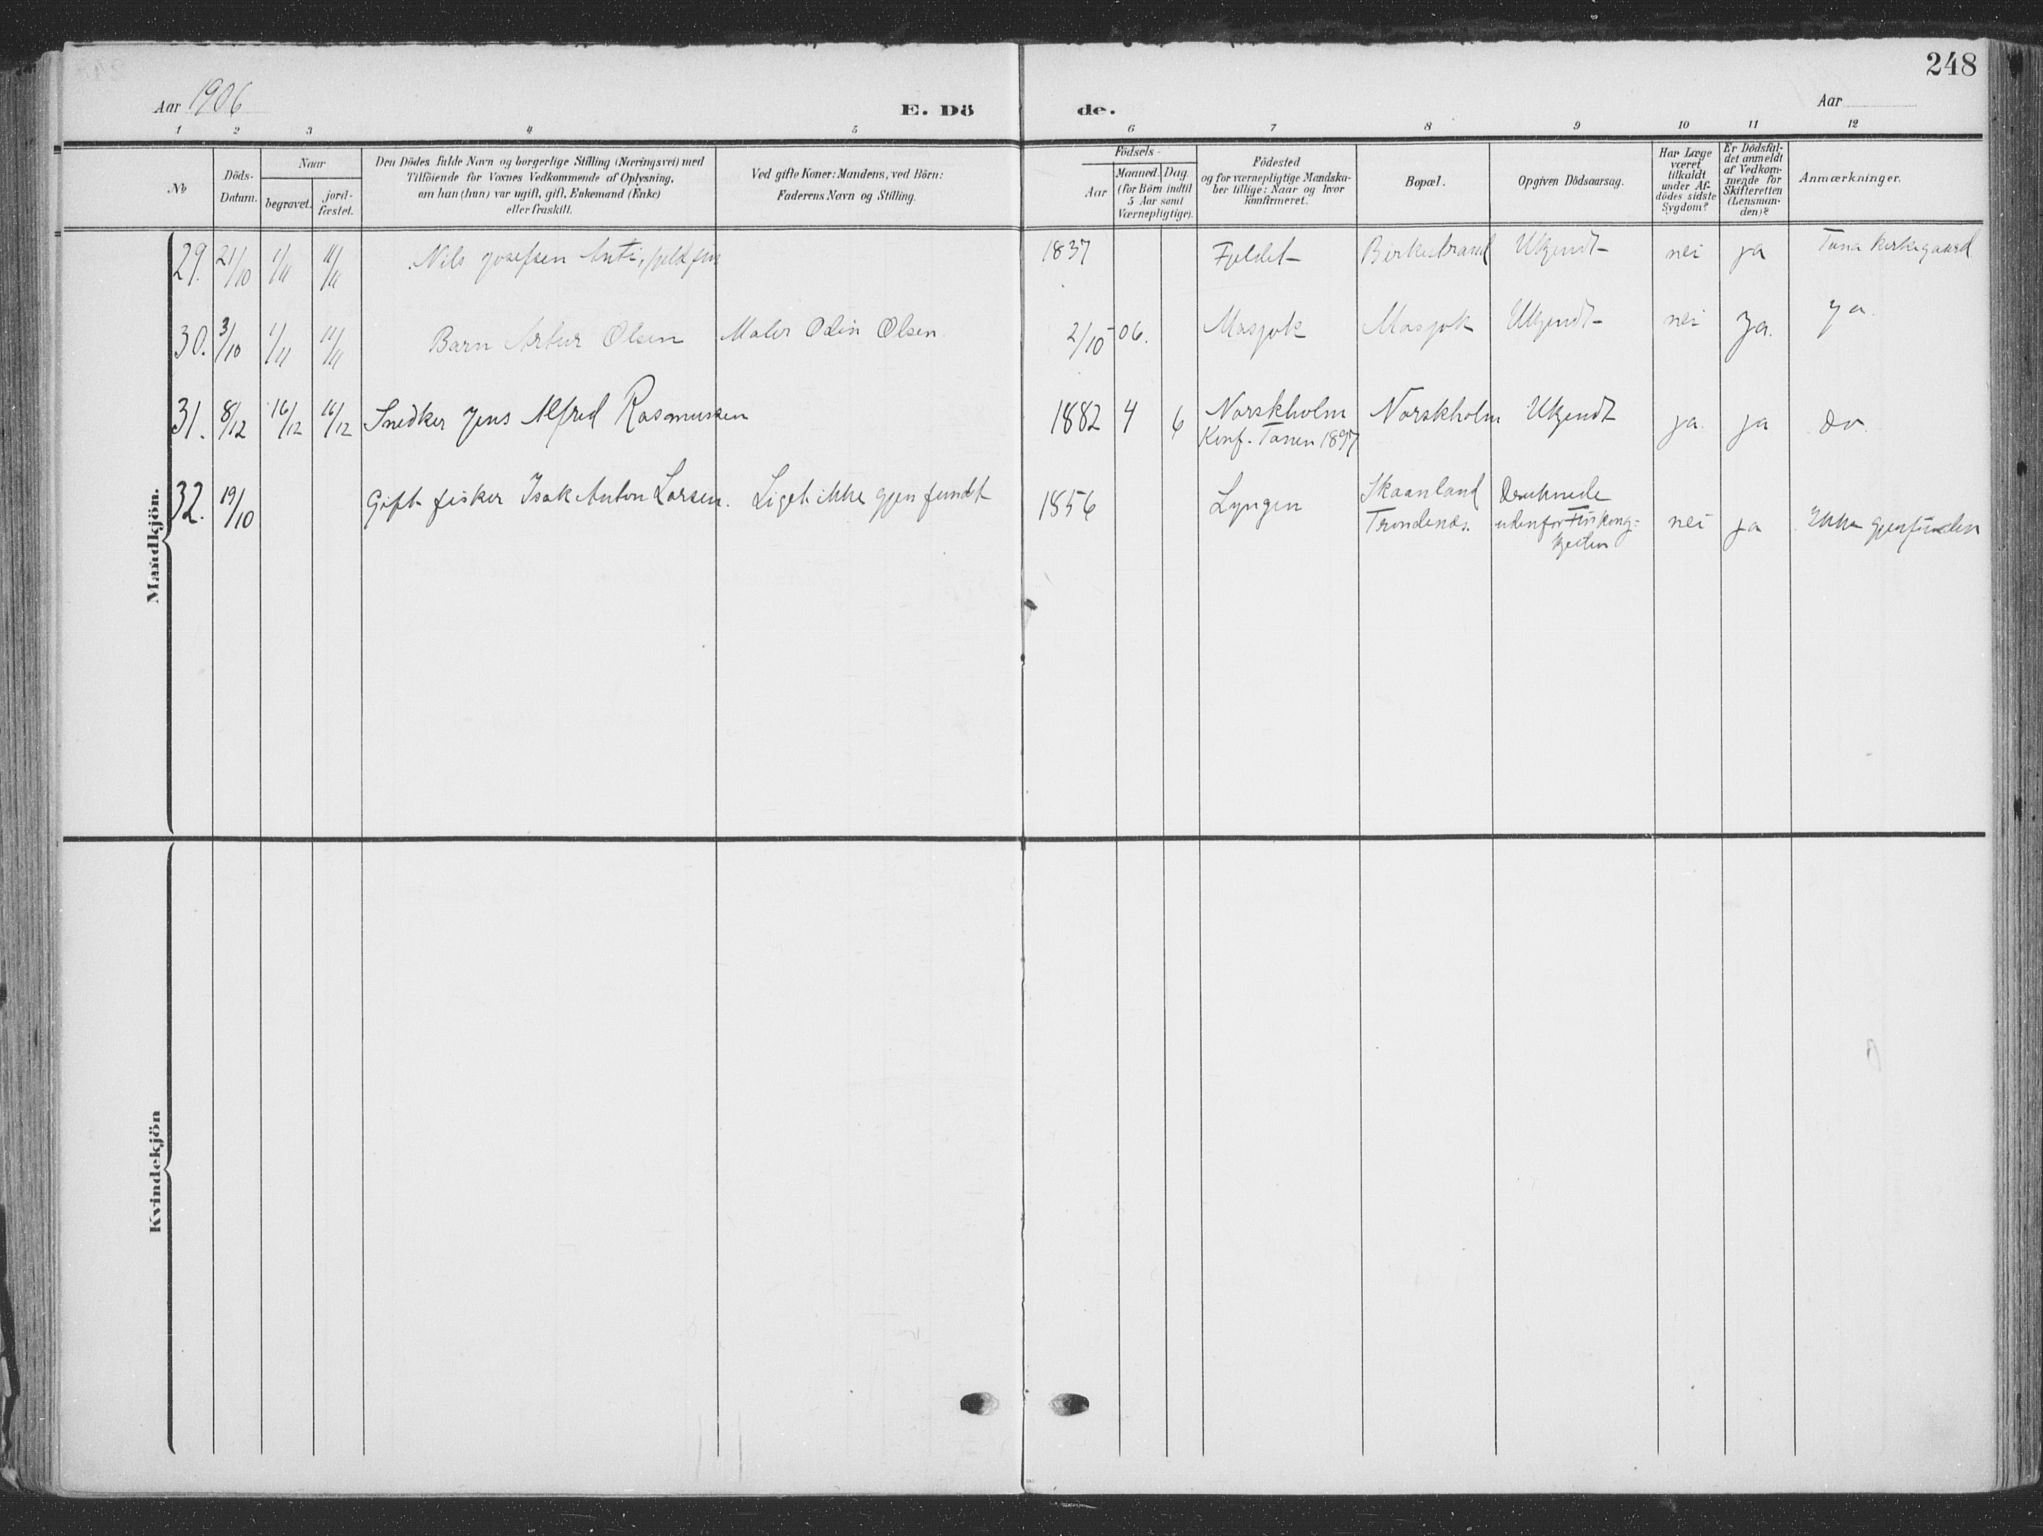 248
Aar 1906
E. Dö
de.
Aar
1 2 3 4 5 6 7 8 9 10 11 12
No
Döds-
Datum.
Naar
begravet.
jord-
fæstet.
Den Dödes fulde Navn og borgerlige Stilling (Næringsvei) med
Tilföiende for Voxnes Vedkommende af Oplysning,
om han (hun) var ugift, gift, Enkemand (Enke)
eller fraskilt.
Ved gifte Koner: Mandens, ved Börn:
Faderens Navn og Stilling.
Födsels-
Aar
Maaned. Dag
(for Börn indtil
5 Aar samt
Værnepligtige).
Födested
og for værnepligtige Mandska-
ber tillige: Naar og hvor
konfirmeret.
Bopæl.
Opgiven Dödsaarsag.
Har Læge
været
tilkaldt
under Af-
dödes sidste
Sygdom?
Er Dödsfal-
det anmeldt
af Vedkom-
mende for
Skifteretten
(Lensman-
den)?
Anmærkninger.
Mandkjön.
29. 21/10 1/11 11/11 Nils Josefsen Anti, fjeldfin 1837 Fjeldet Birkestrand Ukjendt nei ja Tana Kirkegaard
30. 3/10 1/11 11/11 Barn Artur Olsen Maler Odin Olsen. 2/10 - 06. Masjok Masjok Ukjendt nei ja. ja.
31. 8/12 16/12 16/12 Snedker Jens Alfred Rasmussen 1882 4 6 Norskholm Norskholm Ukjendt ja ja do.
Konf. Tanen 1897
32. 19/10 Gift fisker Isak Anton Larsen. Liget ikke gjenfundet 1856 Lyngen Skaanland Druknede
Trondenæs. udenfor Finkong- nei ja Ikke gjenfunden
kjeilen
Kvindekjön